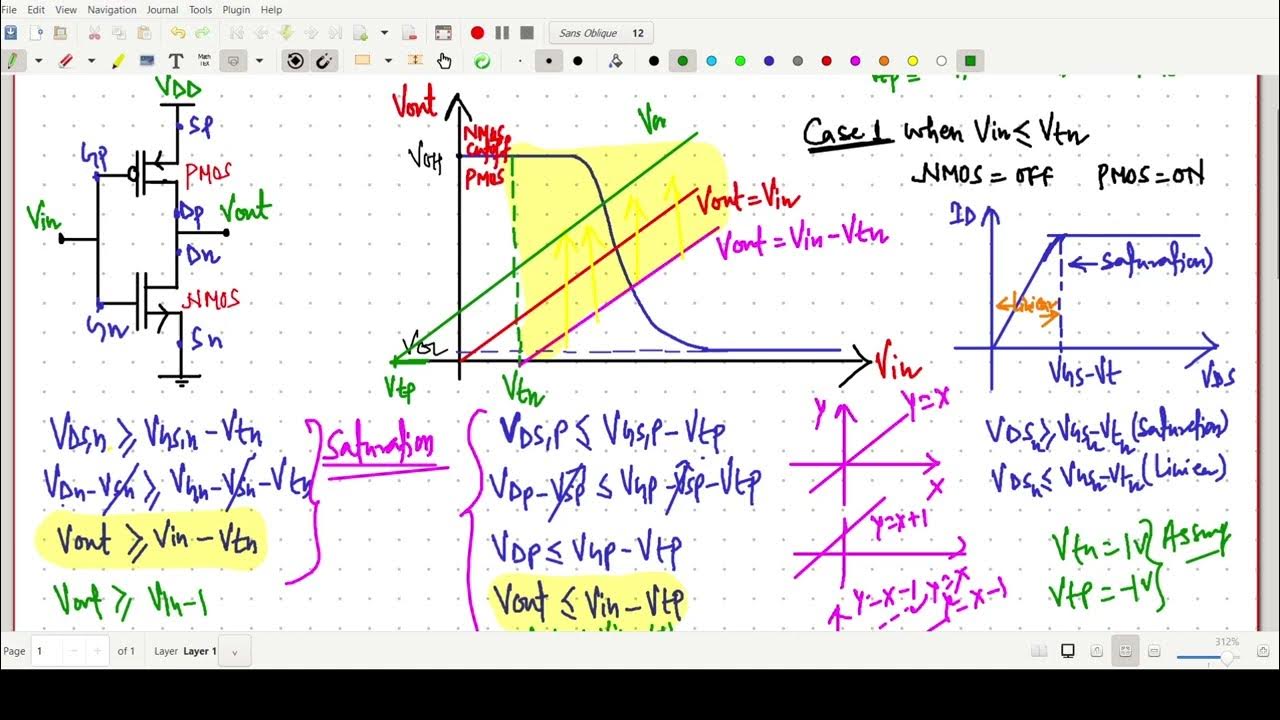 File Edit View Navigation Journal Tools Plugin Help
Sans Oblique 12
VDD
Sp
Gp
PMOS
Vin
Dp
Vout
Dn
NMOS
Gn
Sn
Vout
VOH
NMOS
cutoff
PMOS
Vout=Vin
Vout=Vin-Vtn
VOL
Vin
Vtp
Vtn
Case 1 when Vin≤Vtn
NMOS=OFF PMOS=ON
ID
Saturation
Linier
VGS-Vt
VDS
VDS,n ≥ VGS,n-Vtn
VDn-VSn ≥ VGn-VSn-Vtn
Vout ≥ Vin-Vtn
Vout ≥ Vin-1
Saturation
VDS,P ≤ VGS,P-Vtp
VDp-VSp ≤ VGp-VSp-Vtp
VDp ≤ VGp-Vtp
Vout ≤ Vin-Vtp
Y
y=x
X
y=x+1
y=x-1
y=x
VDSn ≥ VGSn-Vtn (Saturation)
VDSn ≤ VGSn-Vtn (Linier)
Vtn=1V
Vtp=-1V
Assump
Page 1 of 1 Layer Layer 1
312%